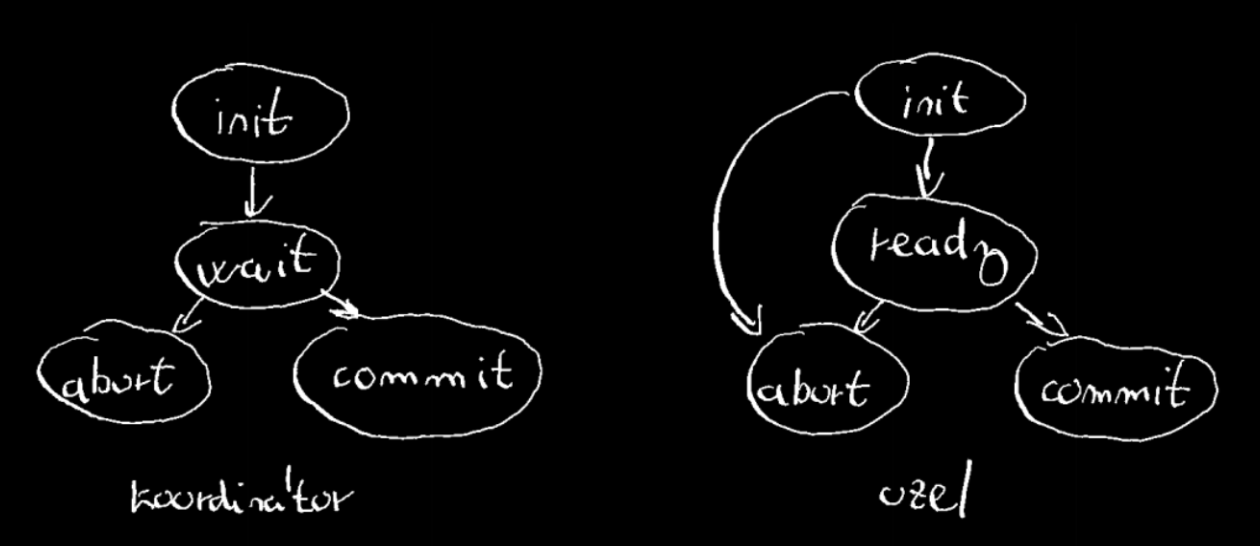 init
wait
abort
commit
koordinátor
init
ready
abort
commit
uzel